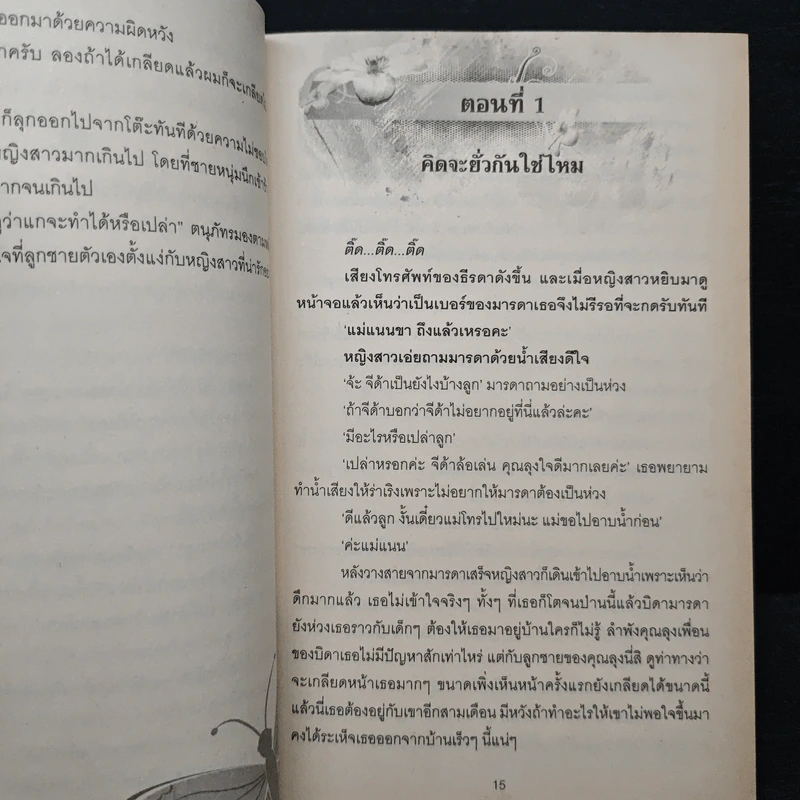 ออกมาด้วยความผิดหวัง
าครับ ลองถ้าได้เกลียดแล้วผมก็จะเกลียด
ก็ลุกออกไปจากโต๊ะทันทีด้วยความไม่
หญิงสาวมากเกินไป โดยที่ชายหนุ่มนึก
ากจนเกินไป
ว่าแกจะทำได้หรือเปล่า" ตนุภัทรมองตาม
ใจที่ลูกชายตัวเองตั้งแง่กับหญิงสาวที่น่ารัก
ตอนที่ 1
คิดจะยั่วกันใช่ไหม
ติ๊ด...ติ๊ด...ติ๊ด
เสียงโทรศัพท์ของธีรดาดังขึ้น และเมื่อหญิงสาวหยิบมาดู
หน้าจอแล้วเห็นว่าเป็นเบอร์ของมารดาเธอจึงไม่รีรอที่จะกดรับทันที
'แม่แนนขา ถึงแล้วเหรอคะ'
หญิงสาวเอ่ยถามมารดาด้วยน้ำเสียงดีใจ
'จ้ะ จีด้าเป็นยังไงบ้างลูก' มารดาถามอย่างเป็นห่วง
'ถ้าจีด้าบอกว่าจีด้าไม่อยากอยู่ที่นี่แล้วล่ะคะ'
'มีอะไรหรือเปล่าลูก'
'เปล่าหรอกค่ะ จีด้าล้อเล่น คุณลุงใจดีมากเลยค่ะ' เธอพยายาม
ทำน้ำเสียงให้ร่าเริงเพราะไม่อยากให้มารดาต้องเป็นห่วง
'ดีแล้วลูก งั้นเดี๋ยวแม่โทรไปใหม่นะ แม่ขอไปอาบน้ำก่อน'
'ค่ะแม่แนน'
หลังวางสายจากมารดาเสร็จหญิงสาวก็เดินเข้าไปอาบน้ำเพราะเห็นว่า
ดึกมากแล้ว เธอไม่เข้าใจจริงๆ ทั้งๆ ที่เธอก็โตจนปานนี้แล้วบิดามารดา
ยังห่วงเธอราวกับเด็กๆ ต้องให้เธอมาอยู่บ้านใครก็ไม่รู้ ลำพังคุณลุงเพื่อน
ของบิดาเธอไม่มีปัญหาสักเท่าไหร่ แต่กับลูกชายของคุณลุงนี่สิ ดูท่าทางว่า
จะเกลียดหน้าเธอมากๆ ขนาดเพิ่งเห็นหน้าครั้งแรกยังเกลียดได้ขนาดนี้
แล้วนี่เธอต้องอยู่กับเขาอีกสามเดือน มีหวังถ้าทำอะไรให้เขาไม่พอใจขึ้นมา
คงได้ระเห็จเธอออกจากบ้านเร็วๆ นี้แน่ๆ
15